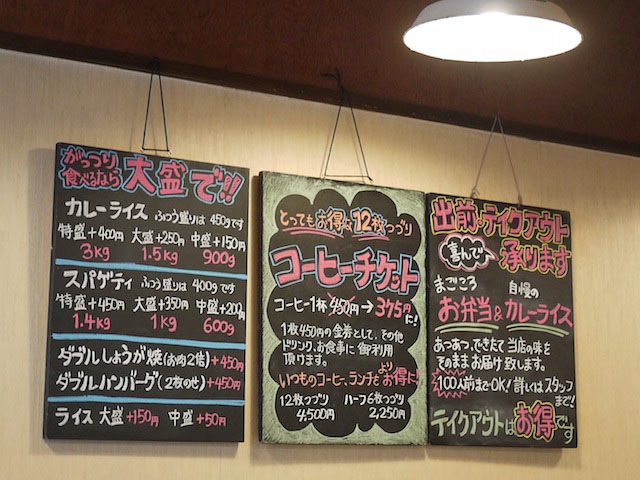 がっつり
食べるなら 大盛で!!
カレーライス ふつう盛りは450gです
特盛+400円 大盛+250円 中盛+150円
3kg 1.5kg 900g
スパゲティ ふつう盛りは400gです
特盛+450円 大盛+350円 中盛+200円
1.4kg 1kg 600g
ダブルしょうが焼(お肉2倍)+450円
ダブルハンバーグ(2枚のせ)+450円
ライス 大盛+150円 中盛+50円
とってもお得な12枚つづり
コーヒーチケット
コーヒー1杯 450円→375円に!
1枚450円の金券として、その他
ドリンク、お食事に御利用
頂けます。
いつものコーヒー、ランチをよりお得に!
12枚つづり ハーフ6枚つづり
4,500円 2,250円
出前・テイクアウト
喜んで 承ります
まごころ 自慢の
お弁当&カレーライス
あつあつ、できたて 当店の味を
そのままお届け致します。
100人前までOK! 詳しくはスタッフまで!
テイクアウトはお得です